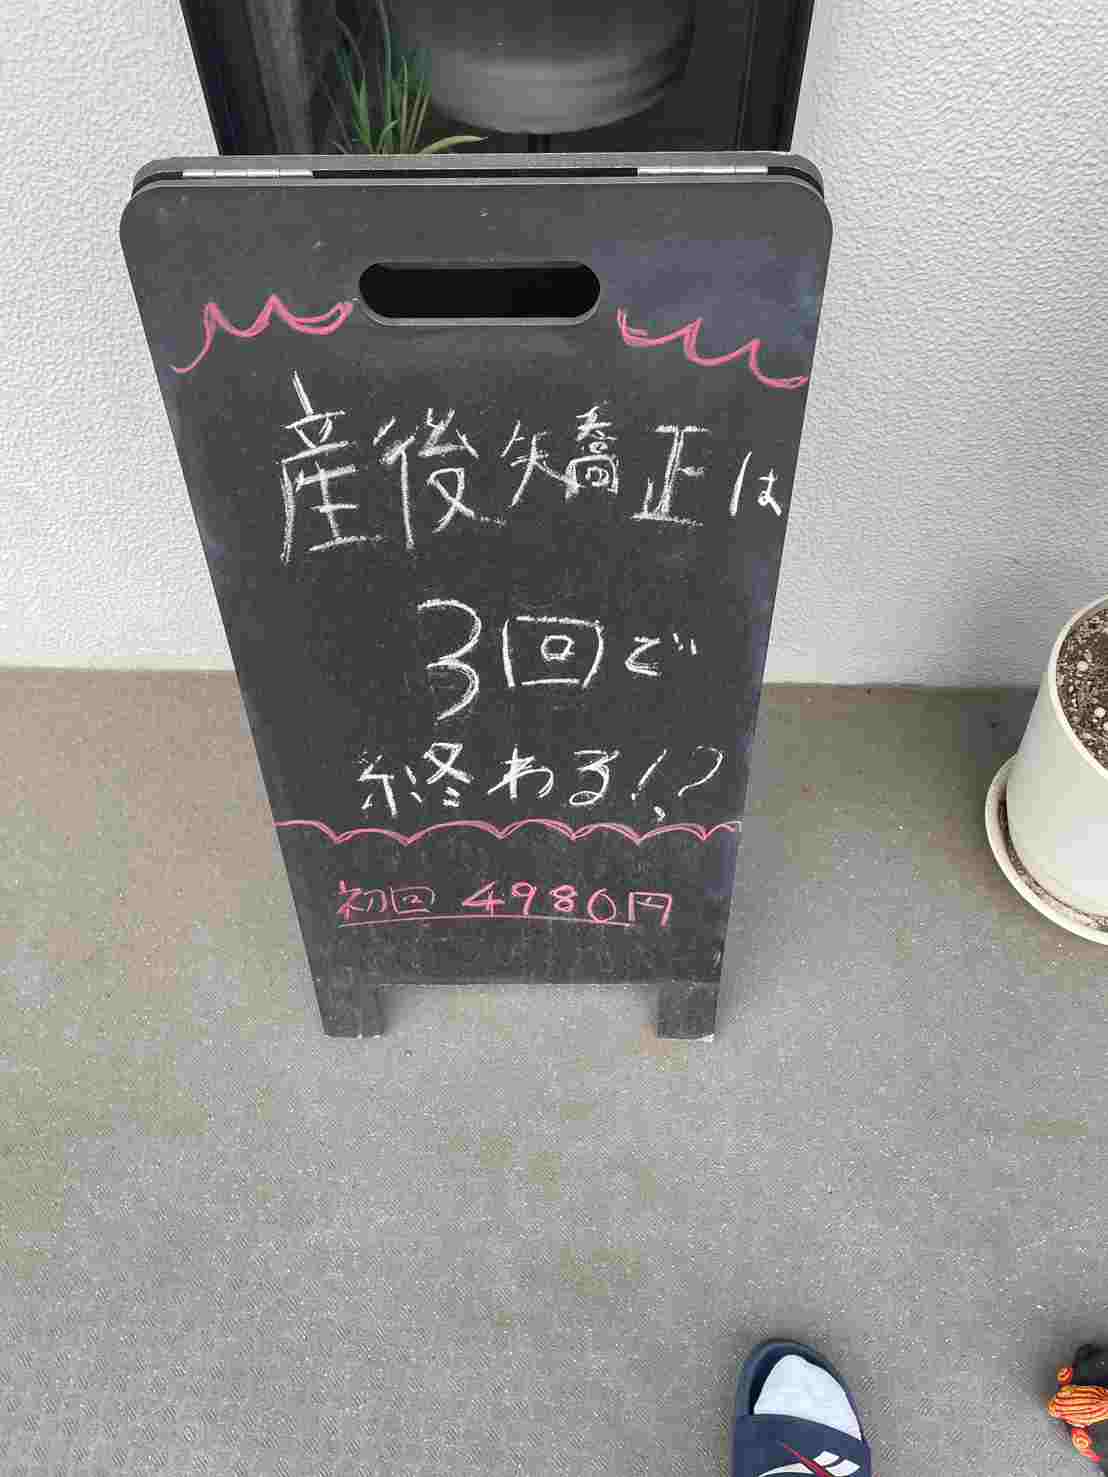 産後矯正は
3回で
終わる!?
初回 4980円